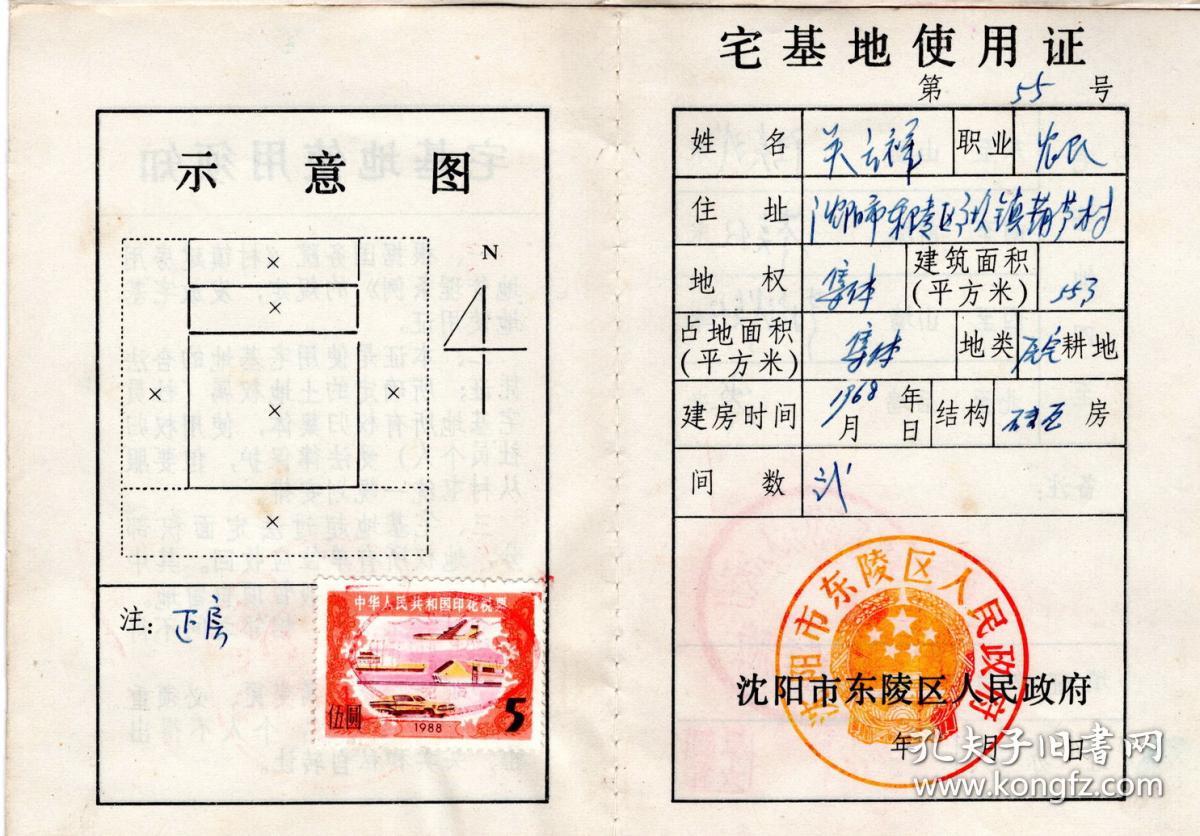 示意图
N
注：正房
中华人民共和国印花税票
伍圆
1988
5
宅基地使用证
第 55 号
姓名 关云祥 职业 农民
住址 沈阳市东陵区 镇 村
地权 集体 建筑面积(平方米) 553
占地面积(平方米) 集体 地类 宅耕地
建房时间 1968年 月 日 结构 房
间数 贰
沈阳市东陵区人民政府
沈阳市东陵区人民政府
年 月 日
孔夫子旧书网
www.kongfz.com